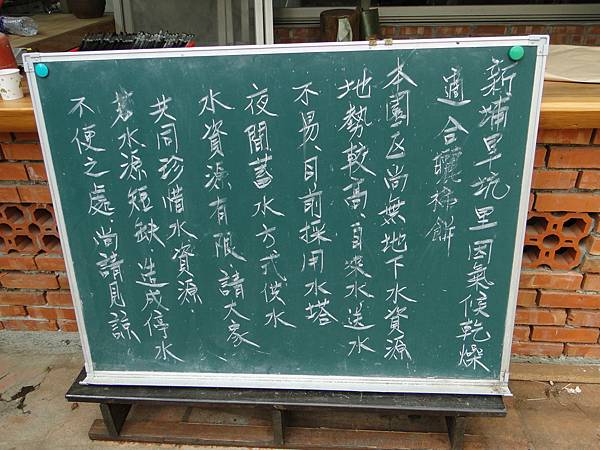 新埔旱坑里因氣候乾燥
適合曬柿餅
本園区尚無地下水資源
地勢較高、自來水送水
不易、目前採用水塔
夜間蓄水方式供水
水資源有限請大家
共同珍惜水資源
若水源短缺造成停水
不便之處尚請見諒